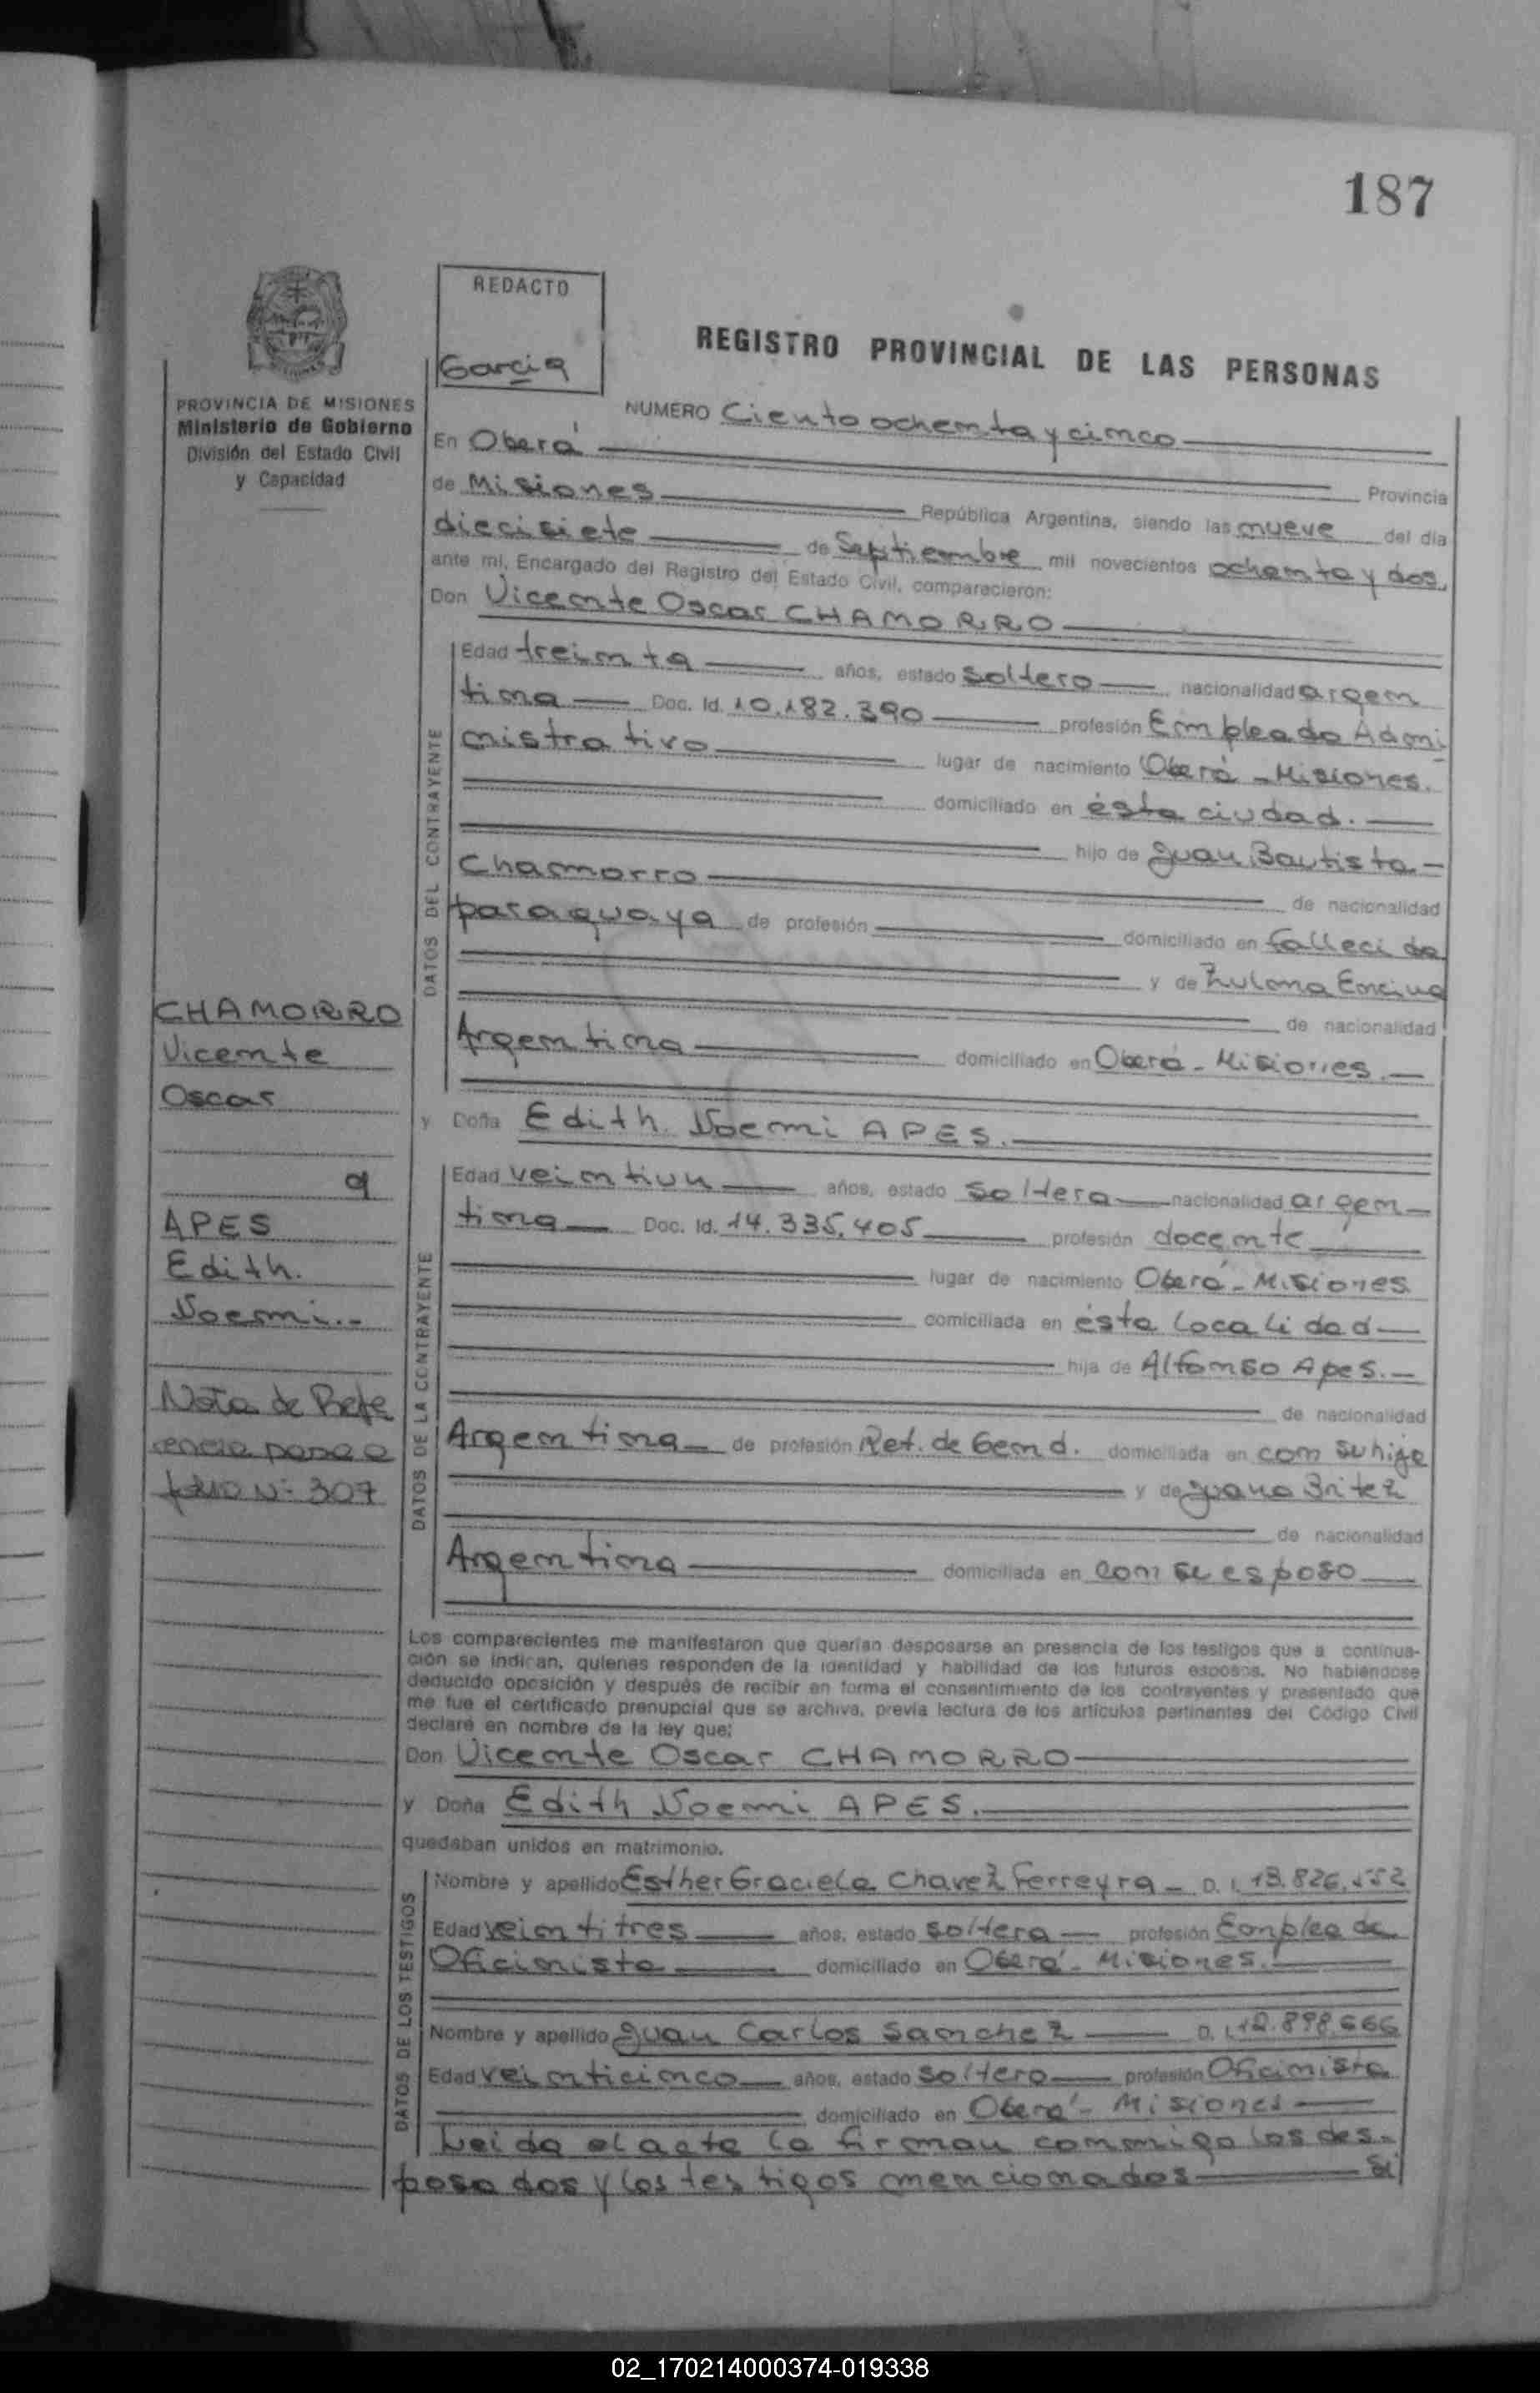 187
REDACTO
Garcia
REGISTRO PROVINCIAL DE LAS PERSONAS
PROVINCIA DE MISIONES
Ministerio de Gobierno
División del Estado Civil
y Capacidad
NUMERO Ciento ochenta y cinco
En Oberá
Provincia
de Misiones República Argentina, siendo las nueve del día
diecisiete de Septiembre mil novecientos ochenta y dos,
ante mí, Encargado del Registro del Estado Civil, comparecieron:
Don Vicente Oscar CHAMORRO
DATOS DEL CONTRAYENTE
Edad treinta años, estado soltero nacionalidad argen
tina Doc. Id. 10.182.390 profesión Empleado Admi
nistrativo lugar de nacimiento Oberá - Misiones.
domiciliado en ésta ciudad.
hijo de Juan Bautista -
Chamorro de nacionalidad
paraguaya de profesión domiciliado en fallecido
y de Zulma Encina
de nacionalidad
Argentina domiciliado en Oberá - Misiones. -
y Doña Edith Noemi APES.
DATOS DE LA CONTRAYENTE
Edad veintiun años, estado soltera nacionalidad argen-
tina Doc. Id. 14.335.405 profesión docente
lugar de nacimiento Oberá - Misiones
domiciliada en ésta localidad
hija de Alfonso Apes. -
de nacionalidad
Argentina de profesión Ret. de Gend. domiciliada en con su hija
y de Juana Britez
de nacionalidad
Argentina domiciliada en con su esposo
CHAMORRO
Vicente
Oscar
APES
Edith.
Noemi.-
Nota de Refe
rencia pase a
folio Nº 307
Los comparecientes me manifestaron que querían desposarse en presencia de los testigos que a continua-
ción se indican, quienes responden de la identidad y habilidad de los futuros esposos. No habiéndose
deducido oposición y después de recibir en forma el consentimiento de los contrayentes y presentado que
me fue el certificado prenupcial que se archiva, previa lectura de los artículos pertinentes del Código Civil
declaré en nombre de la ley que:
Don Vicente Oscar CHAMORRO
y Doña Edith Noemi APES.
quedaban unidos en matrimonio.
DATOS DE LOS TESTIGOS
Nombre y apellido Esther Graciela Chavez Ferreyra - D.I. 13.826.
Edad veintitres años, estado soltera profesión Empleada
Oficinista domiciliado en Oberá - Misiones.
Nombre y apellido Juan Carlos Sanchez D.I. 12.898.666
Edad veinticinco años, estado soltero profesión Oficinista
domiciliado en Oberá - Misiones
Leida el acta la firman conmigo los des-
posados y los testigos mencionados
02_170214000374-019338